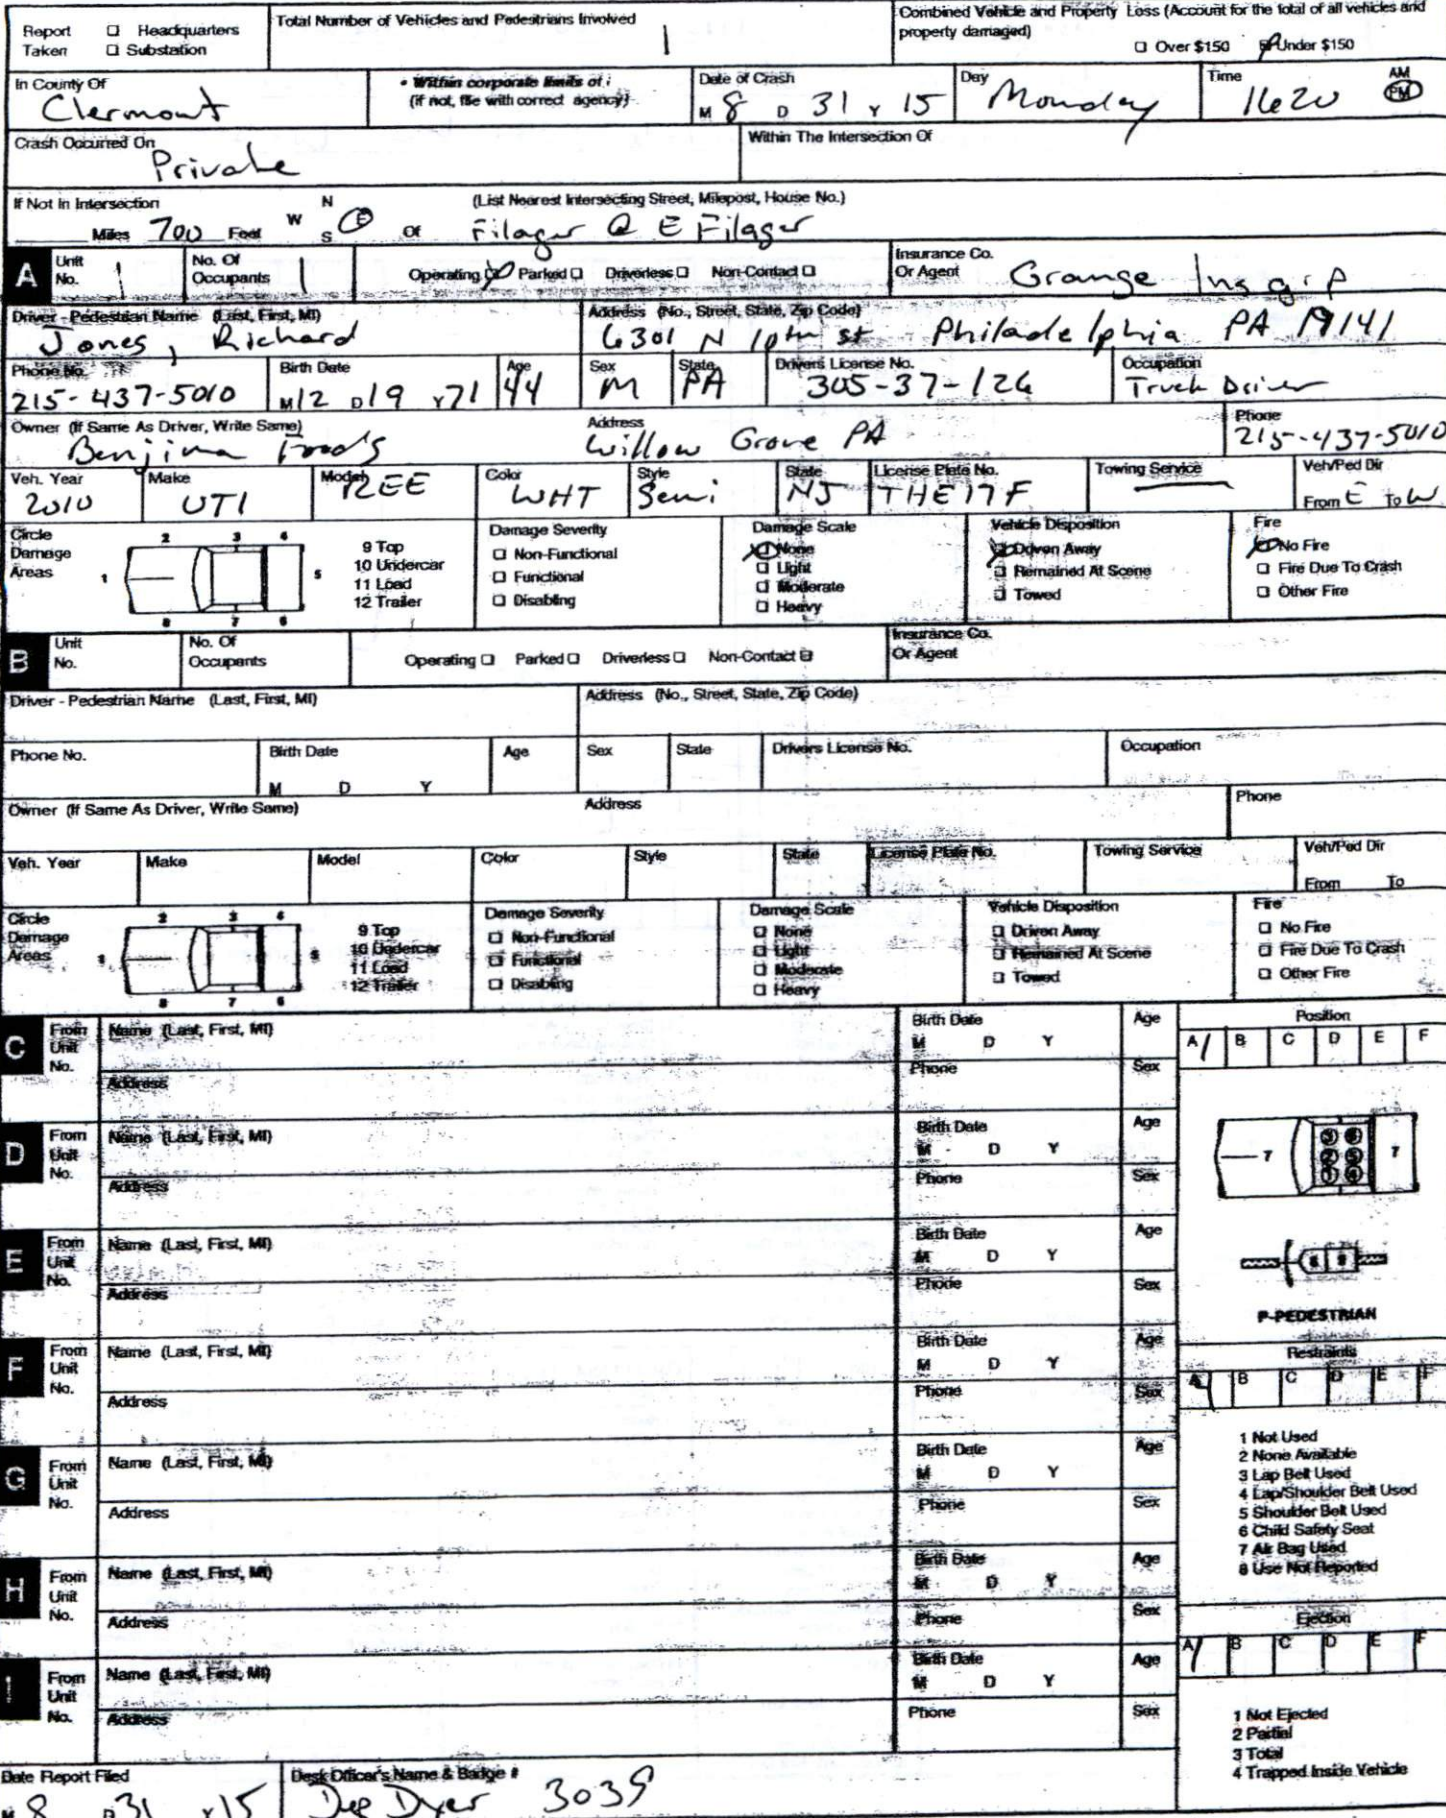 Report ☐ Headquarters
Taken ☐ Substation
Total Number of Vehicles and Pedestrians Involved
1
Combined Vehicle and Property Loss (Account for the total of all vehicles and
property damaged)
☐ Over $150 ☒ Under $150
In County Of
Clermont
• Within corporate limits of:
(if not, file with correct agency)
Date of Crash
M 8 D 31 Y 15
Day
Monday
Time
1620
AM
PM
Crash Occurred On
Private
Within The Intersection Of
If Not In Intersection
Miles 700 Feet
N
W E
S
Of
(List Nearest Intersecting Street, Milepost, House No.)
Filager @ E Filager
A
Unit
No. 1
No. Of
Occupants 1
Operating ☒ Parked ☐ Driverless ☐ Non-Contact ☐
Insurance Co.
Or Agent
Grange Ins grp
Driver - Pedestrian Name (Last, First, MI)
Jones, Richard
Address (No., Street, State, Zip Code)
6301 N 10th st Philadelphia PA 19141
Phone No.
215-437-5010
Birth Date
M 12 D 19 Y 71
Age
44
Sex
M
State
PA
Drivers License No.
305-37-126
Occupation
Truck Driver
Owner (If Same As Driver, Write Same)
Benjima Foods
Address
Willow Grove PA
Phone
215-437-5010
Veh. Year
2010
Make
UTI
Model
REE
Color
WHT
Style
Semi
State
NJ
License Plate No.
THE17F
Towing Service
Veh/Ped Dir
From E To W
Circle
Damage
Areas
1 2 3 4 5 6 7 8
9 Top
10 Undercar
11 Load
12 Trailer
Damage Severity
☐ Non-Functional
☐ Functional
☐ Disabling
Damage Scale
☒ None
☐ Light
☐ Moderate
☐ Heavy
Vehicle Disposition
☒ Driven Away
☐ Remained At Scene
☐ Towed
Fire
☒ No Fire
☐ Fire Due To Crash
☐ Other Fire
B
Unit
No.
No. Of
Occupants
Operating ☐ Parked ☐ Driverless ☐ Non-Contact ☐
Insurance Co.
Or Agent
Driver - Pedestrian Name (Last, First, MI)
Address (No., Street, State, Zip Code)
Phone No.
Birth Date
M D Y
Age
Sex
State
Drivers License No.
Occupation
Owner (If Same As Driver, Write Same)
Address
Phone
Veh. Year
Make
Model
Color
Style
State
License Plate No.
Towing Service
Veh/Ped Dir
From To
Circle
Damage
Areas
1 2 3 4 5 6 7 8
9 Top
10 Undercar
11 Load
12 Trailer
Damage Severity
☐ Non-Functional
☐ Functional
☐ Disabling
Damage Scale
☐ None
☐ Light
☐ Moderate
☐ Heavy
Vehicle Disposition
☐ Driven Away
☐ Remained At Scene
☐ Towed
Fire
☐ No Fire
☐ Fire Due To Crash
☐ Other Fire
C
From
Unit
No.
Name (Last, First, MI)
Address
Birth Date
M D Y
Age
Phone
Sex
D
From
Unit
No.
Name (Last, First, MI)
Address
Birth Date
M D Y
Age
Phone
Sex
E
From
Unit
No.
Name (Last, First, MI)
Address
Birth Date
M D Y
Age
Phone
Sex
F
From
Unit
No.
Name (Last, First, MI)
Address
Birth Date
M D Y
Age
Phone
Sex
G
From
Unit
No.
Name (Last, First, MI)
Address
Birth Date
M D Y
Age
Phone
Sex
H
From
Unit
No.
Name (Last, First, MI)
Address
Birth Date
M D Y
Age
Phone
Sex
I
From
Unit
No.
Name (Last, First, MI)
Address
Birth Date
M D Y
Age
Phone
Sex
Position
A 1 B C D E F
7 3 6 7
2 5
1 4
8 9
P-PEDESTRIAN
Restraints
A B C D E F
1 Not Used
2 None Available
3 Lap Belt Used
4 Lap/Shoulder Belt Used
5 Shoulder Belt Used
6 Child Safety Seat
7 Air Bag Used
8 Use Not Reported
Ejection
A 1 B C D E F
1 Not Ejected
2 Partial
3 Total
4 Trapped Inside Vehicle
Date Report Filed
M 8 D 31 Y 15
Desk Officer's Name & Badge #
Dep Dyer 3039